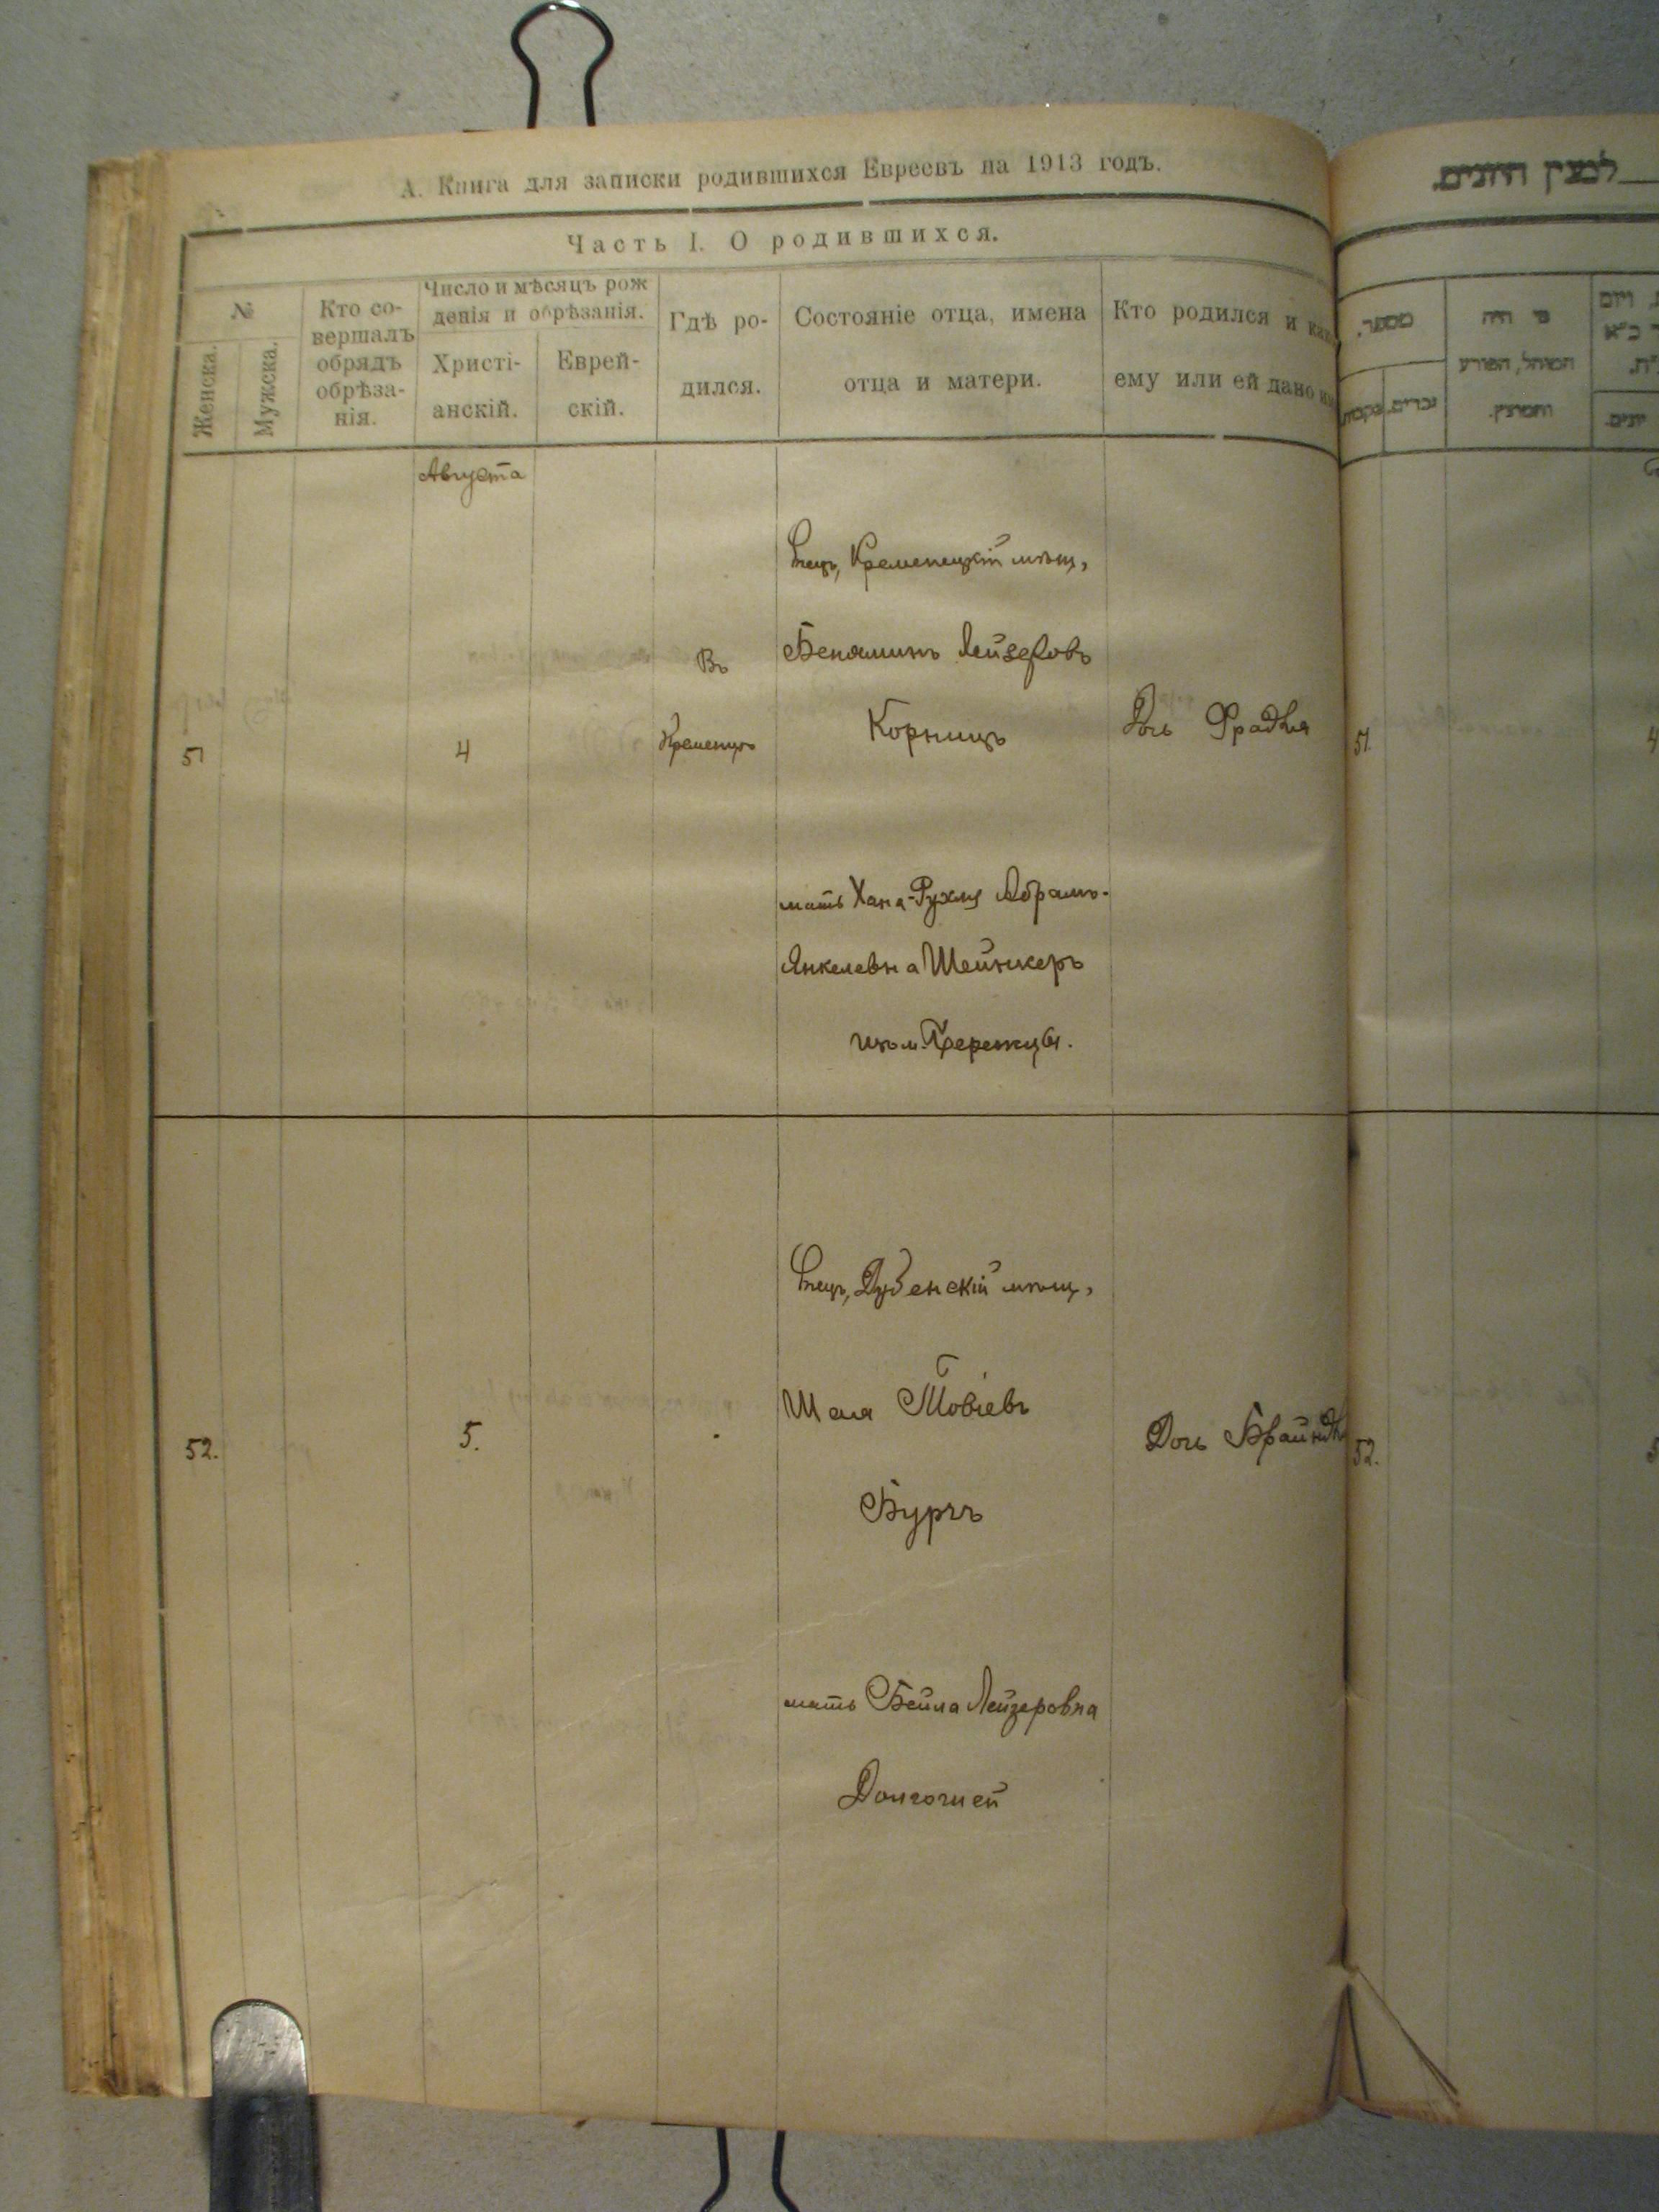 А. Книга для записки родившихся Евреевъ на 1913 годъ.
Часть I. О родившихся.
№
Женска.
Мужска.
Кто со-
вершалъ
обрядъ
обрѣза-
нія.
Число и мѣсяцъ рож
денія и обрѣзанія.
Христі-
анскій.
Еврей-
скій.
Гдѣ ро-
дился.
Состояніе отца, имена
отца и матери.
Кто родился и как
ему или ей дано им
Августа
51
4
Въ
Кременцѣ
Отецъ, Кременецкій мѣщ,
Бенямина Лейзеровъ
Корницъ
мать Хана-Рухля Абрамъ-
Янкелевна Шейнкеръ
изъ м. Бережцы.
Дочь Фрадля
52.
5.
Отецъ, Дубенскій мѣщ,
Шая Товіевъ
Бургъ
мать Бейла Лейзеровна
Долгошей
Дочь Брайндл
מספר.
נקבות
זכרים.
מי היה
המוהל, הפורע
והמוצץ.
51.
52.